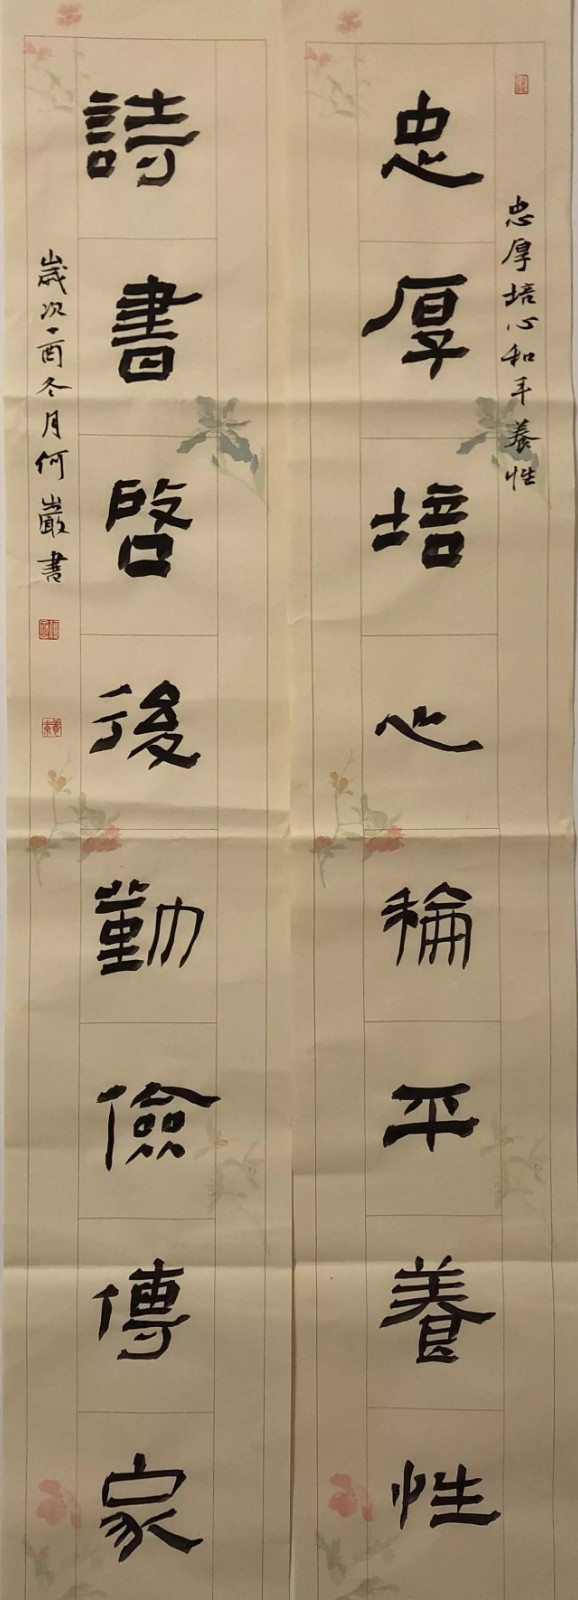 忠厚培心和平養性
忠厚培心稐平養性
詩書啓後勤儉傳家
歲次丁酉冬月何巖書